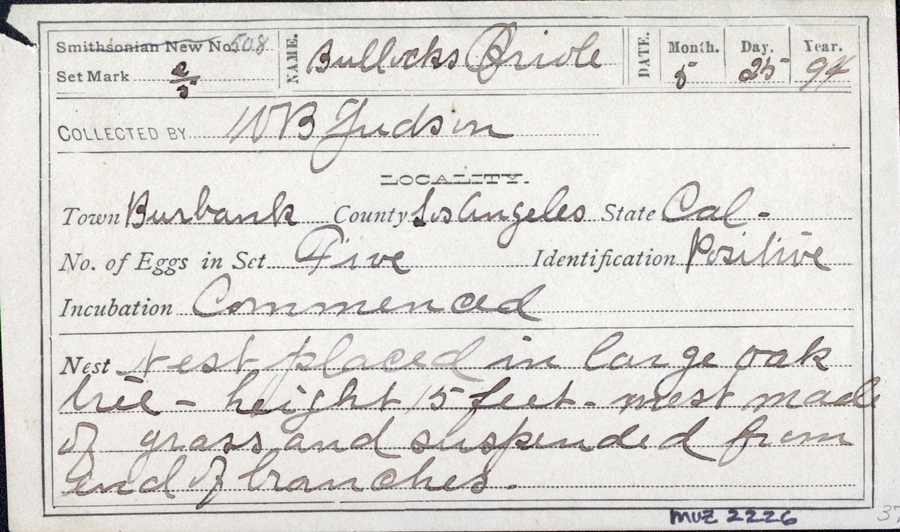 Smithsonian New No. 508 NAME. Bullocks Oriole DATE. Month. Day. Year.
Set Mark e/5 5 25 94
COLLECTED BY WB Judson
LOCALITY.
Town Burbank County Los Angeles State Cal-
No. of Eggs in Set Five Identification Positive
Incubation Commenced
Nest Nest placed in large oak
tree - height 15 feet - nest made
of grass and suspended from
end of branches.
MVZ 2226
37